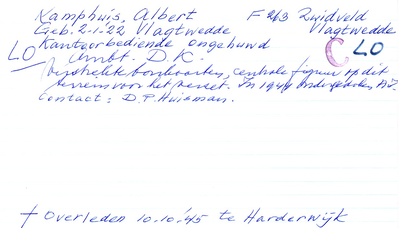 Kamphuis, Albert F 263 Zuidveld
Geb. 2-1-22 Vlagtwedde Vlagtwedde
Kantoorbediende ongehuwd
LO Ambt. D.K. C LO
Verstrekte bonkaarten, centrale figuur op dit
terrein voor het verzet. In 1944 ondergedoken N.I.
Contact: D.P. Huisman.
† Overleden 10.10.'45 te Harderwijk